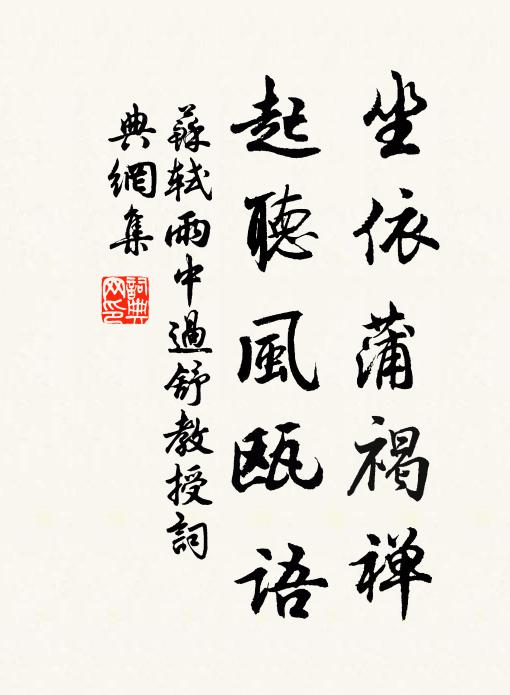 坐依蒲褐禅
起聽風瓯語
蘇軾雨中過舒教授詞
典網集
詞典網印